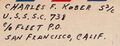 CHARLES F. YOBER S3/c
U.S.S. S.C. 738
℅ FLEET P.O.
SAN FRANCISCO, CALIF.